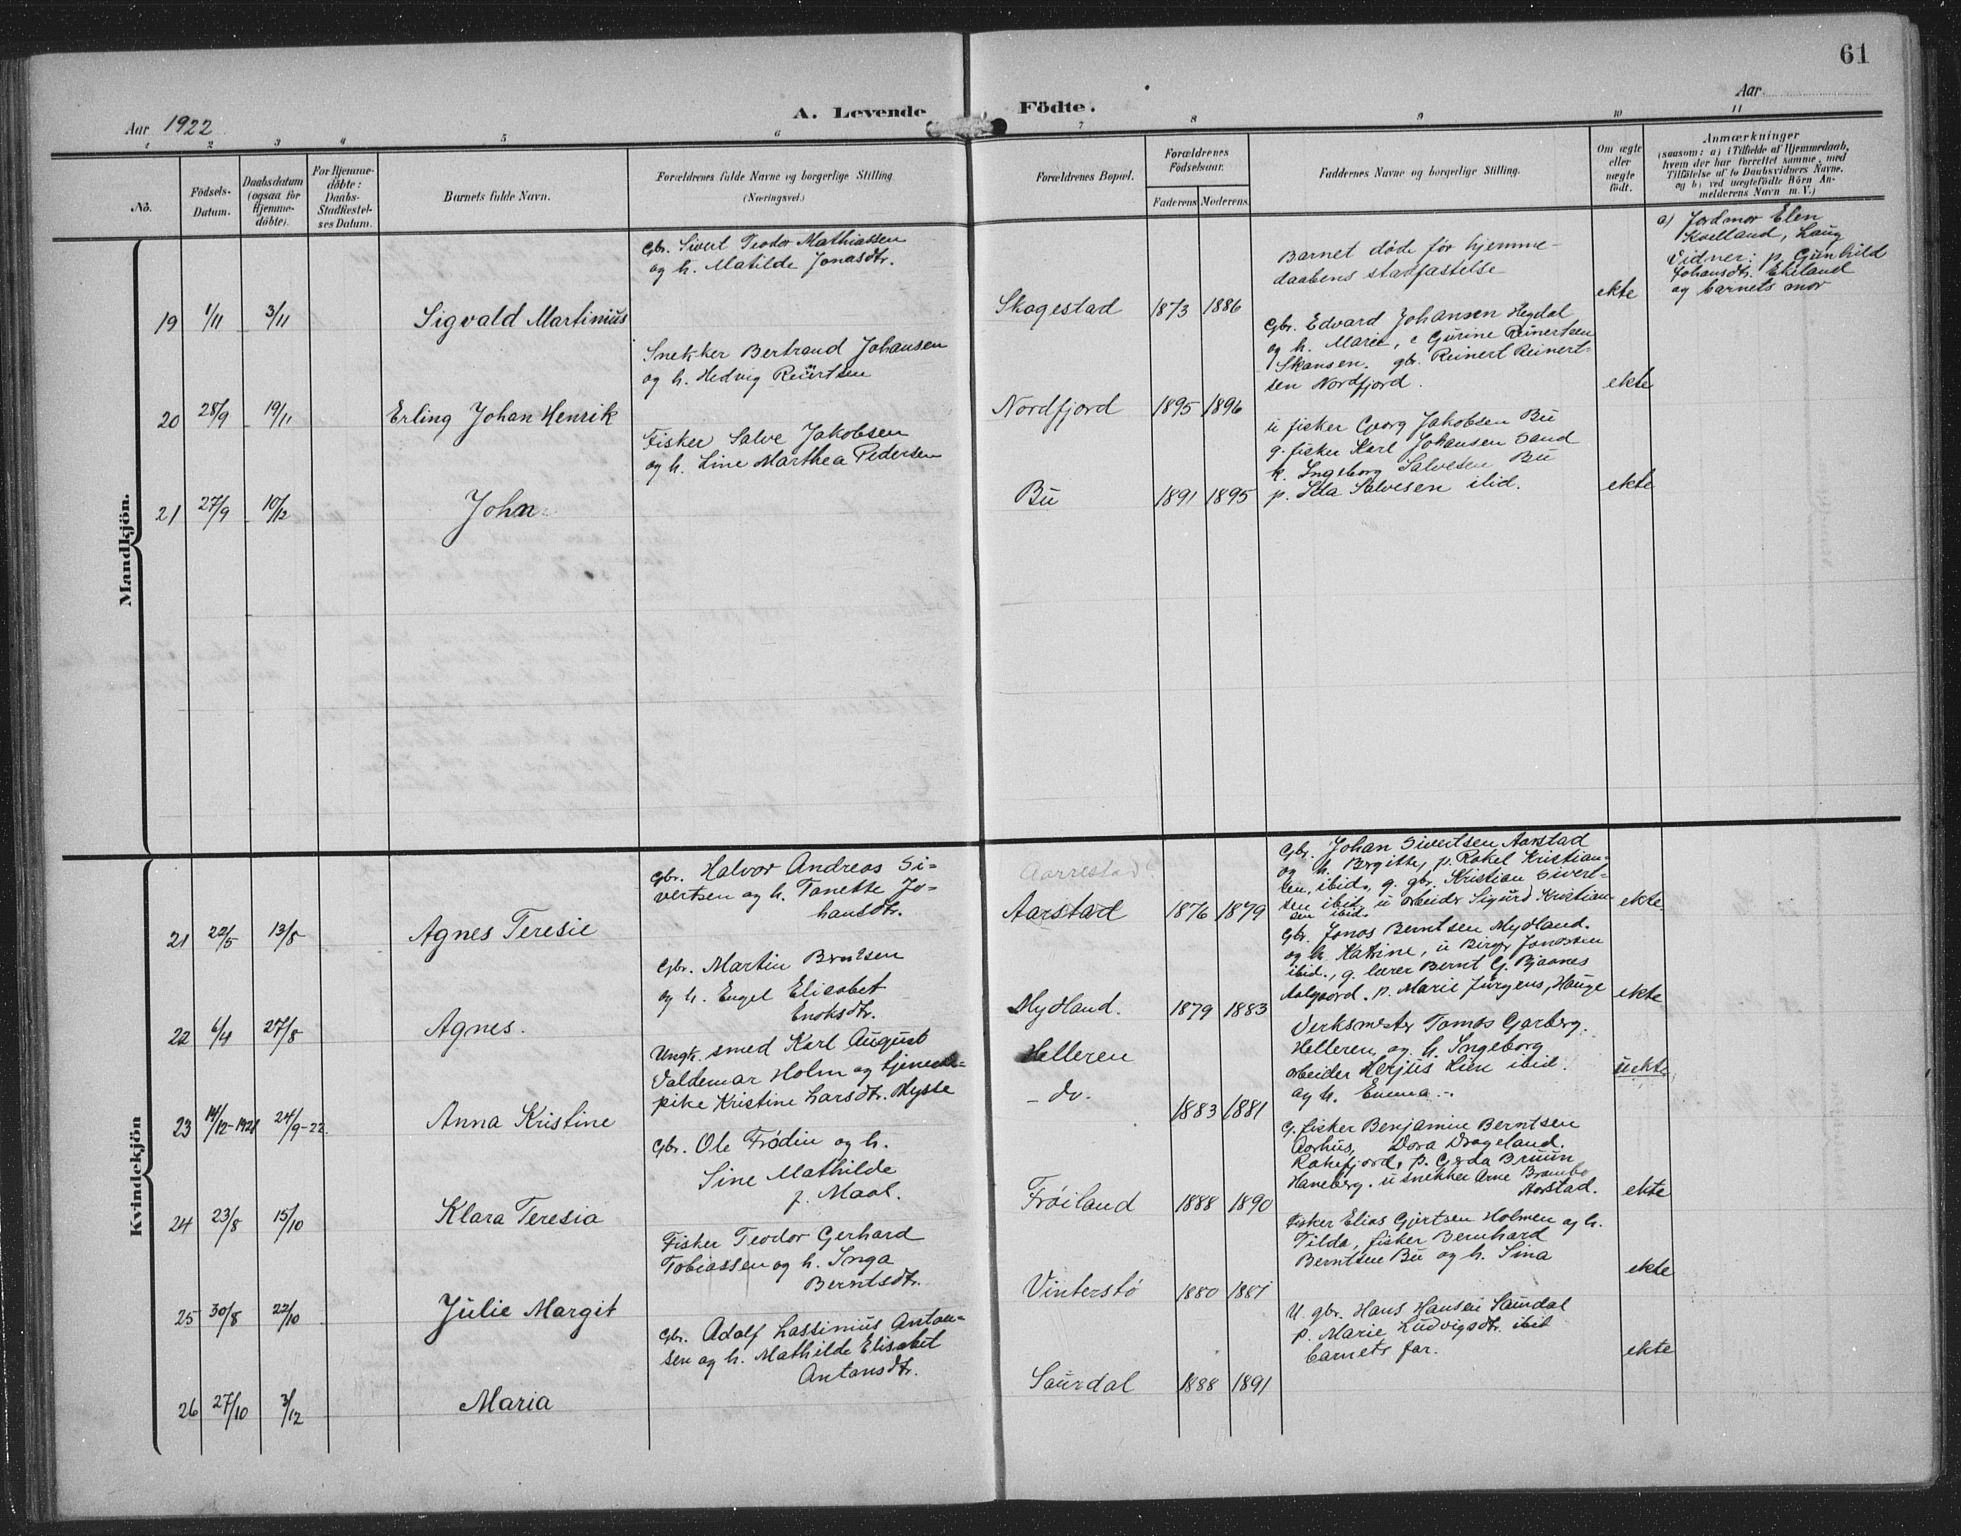 61
Aar 1922
A. Levende
Födte.
Aar
1 2 3 4 5 6 7 8 9 10 11
No.
Födsels-
Datum.
Daabsdatum
(ogsaa for
Hjemme-
döbte).
For Hjemme-
döbte:
Daabs-
Stadfæstel-
ses Datum.
Barnets fulde Navn.
Forældrenes fulde Navne og borgerlige Stilling
(Næringsvei.)
Forældrenes Bopæl.
Forældrenes
Födselsaar.
Faderens Moderens.
Faddernes Navne og borgerlige Stilling.
Om ægte
eller
uægte
födt.
Anmærkninger
(saasom: a) i Tilfælde af Hjemmedaab,
hvem der har forrettet samme, med
Tilföielse af to Daabsvidners Navne.
og b) ved uægtefödte Börn An-
melderens Navn m. V.)
Mandkjön.
19 1/11 3/11
Sigvald Martinius
Gbr. Sivert Teodor Mathiassen
og h. Matilde Jonasdtr.
Skagestad 1873 1886
Barnet døde før hjemme-
daabens stadfæstelse
ekte
a) Jordmor Elen
Kvelland, Haug
Vidner: p. Gunhild
Johansdtr. Ekeland
og barnets mor
20 28/9 19/11
Erling Johan Henrik
Snekker Bertrand Johansen
og h. Hedvig Reinertsen
Nordfjord 1895 1896
Gbr. Edvard Johansen Hegdal
og h. Marie, e Gurine Reinertsen
Skansen. gbr. Reinert Reinert-
sen Nordfjord.
ekte
21 27/9 10/12
John
Fisker Salve Jakobsen
og h. Line Marthea Pedersen
Bu 1891 1895
u fisker Georg Jakobsen Bu
g. fisker Karl Johansen Sand
k. Ingeborg Salvesen Bu
p. Ida Salvesen ibid.
ekte
Kvindekjön
21 22/5 13/8
Agnes Teresie
Gbr. Halvor Andreas Si-
vertsen og h. Tanette Jo-
hansdtr.
Aarrestad
Aarstad 1876 1879
Gbr. Johan Sivertsen Aarstad
og h. Bergitte, p. Rakel Kristian-
sen, ibid., g. gbr. Kristian Sivert-
sen ibid. u arbeider Sigurd Kristian-
sen ibid.
ekte
22 6/4 27/8
Agnes.
Gbr. Martin Berntsen
og h. Engel Elisabet
Enoksdtr.
Mydland. 1879 1883
Gbr. Jonas Berntsen Mydland.
og h. Katrine, u Birger Jonassen
ibid., g. lærer Bernt G. Bjaanes
Aalgaard. p. Marie Jürgens, Hauge
ekte
23 14/12-1921 24/9-22.
Anna Kristine
Ungk. smed Karl August
Valdemar Holm og tjeneste-
pike Kristine Larsdtr. Myste
Helleren
- do. 1883 1881
Verksmester Tomas Garberg.
Helleren og h. Ingeborg
arbeider Herjus Lien ibid.
og h. Emma.
uekte
24 23/8 15/10
Klara Teresia
Gbr. Ole Frødin og h.
Sine Mathilde
f. Maal.
Frøiland 1888 1890
G. fisker Benjamin Berntsen
Aarhus, Dora Drageland.
Rakefjord, p. Gerda Bruun
Haneberg. u snekker Arne Brambo
Aarstad.
ekte
25 30/8 22/10
Julie Margit
Fisker Teodor Gerhard
Tobiassen og h. Inga
Berntsdtr.
Vinterstø 1880 1881
Fisker Elias Gjertsen Holmen og h.
Tilda, fisker Bernhard
Berntsen Bu og h. Sina
ekte
26 27/10 3/12
Maria
Gbr. Adolf Lassinius Anton-
sen og h. Mathilde Elisabet
Antonsdtr.
Saurdal 1888 1891
U. gbr. Hans Hansen Saurdal
p. Marie Ludvigsdtr. ibid
barnets far.
ekte